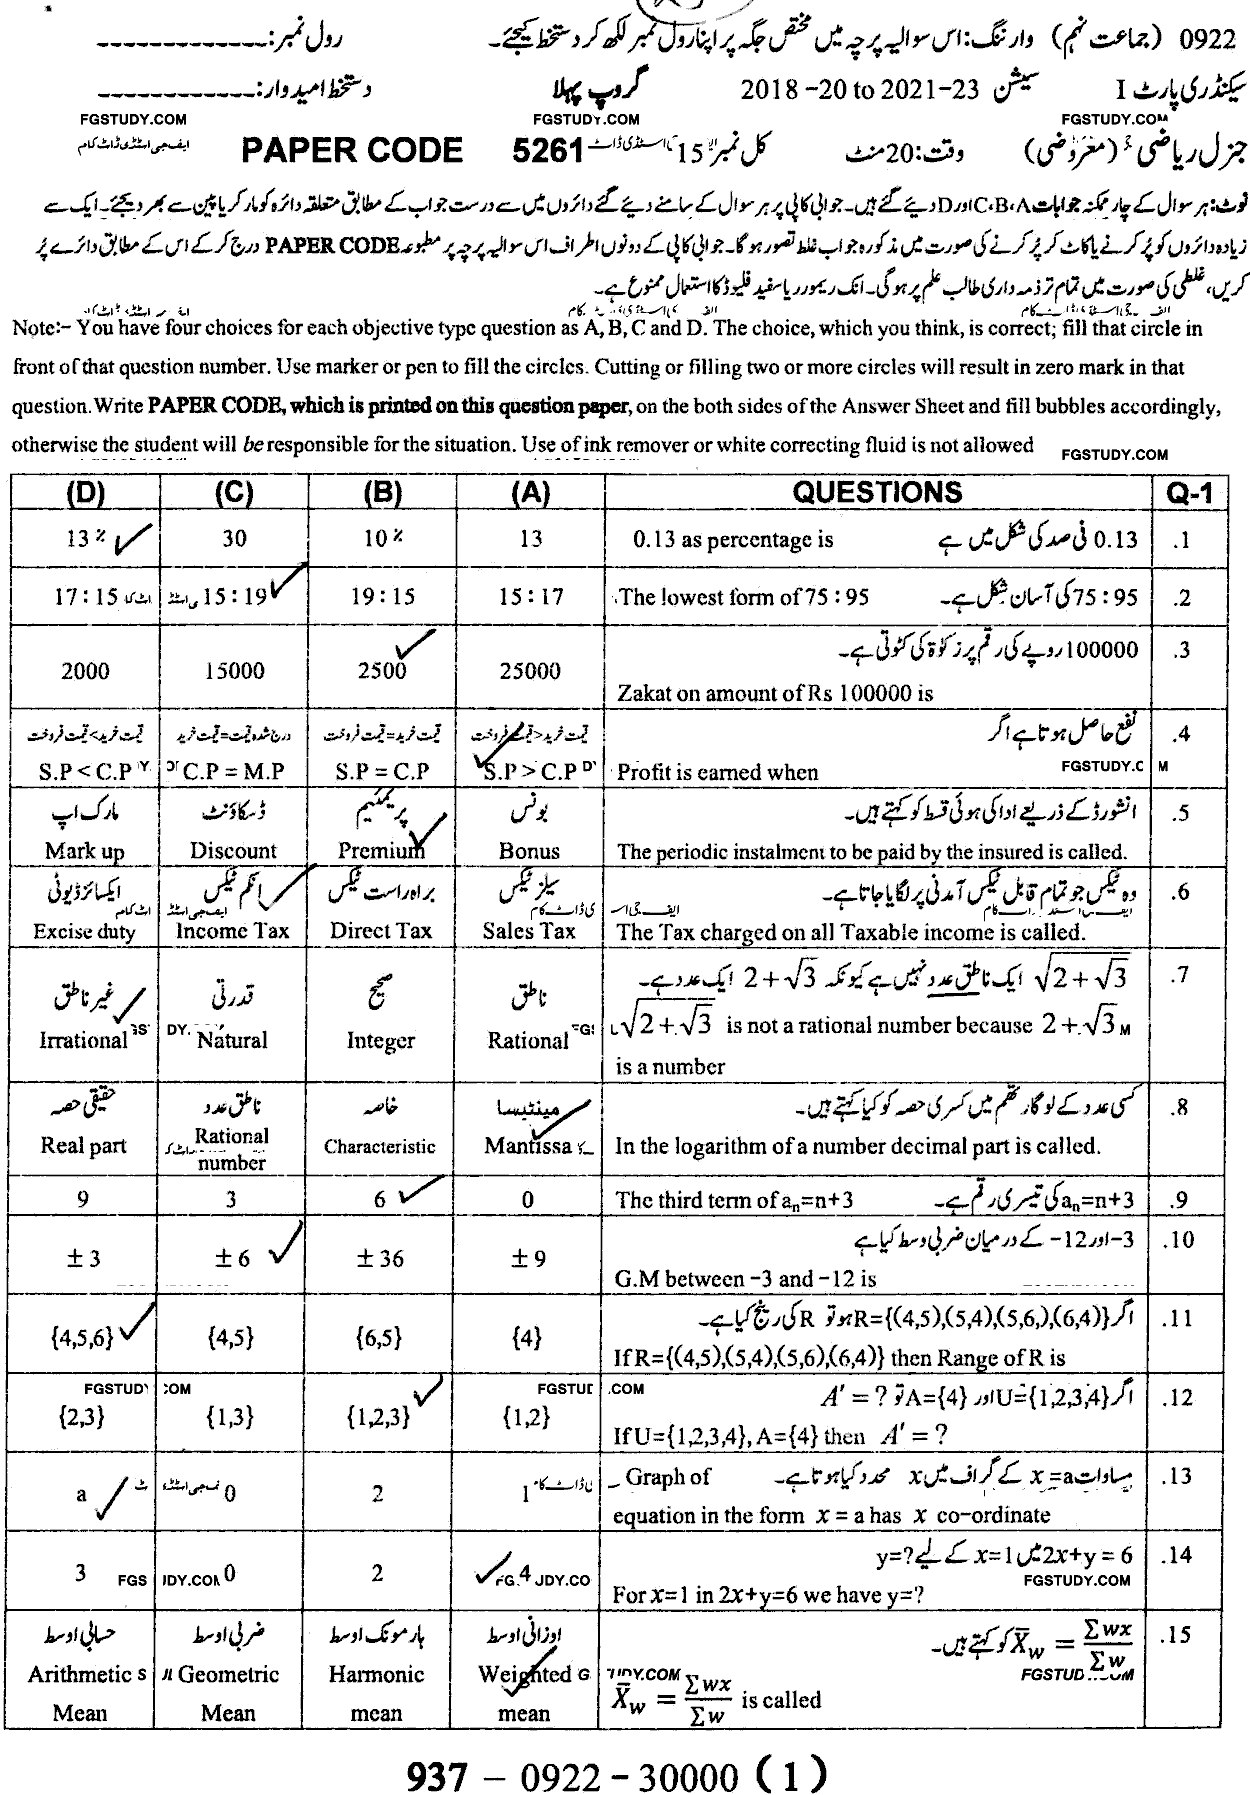 0922 (جماعت نہم) وارننگ: اس سوالیہ پرچہ میں مختص جگہ پر اپنا رول نمبر لکھ کر دستخط کیجئے۔ رول نمبر:_____________
سیکنڈری پارٹ I سیشن 2018 -20 to 2021-23 گروپ پہلا دستخط امیدوار:_____________
FGSTUDY.COM FGSTUDY.COM FGSTUDY.COM
جنرل ریاضی (معروضی) وقت: 20 منٹ کل نمبر 15 PAPER CODE 5261 ایف جی اسٹڈی ڈاٹ کام
نوٹ: ہر سوال کے چار ممکنہ جوابات C،B،A اور D دیئے گئے ہیں۔ جوابی کاپی پر ہر سوال کے سامنے دیئے گئے دائروں میں سے درست جواب کے مطابق متعلقہ دائرہ کو مارکر یا پین سے بھر دیجئے۔ ایک سے
زیادہ دائروں کو پُر کرنے یا کاٹ کر پُر کرنے کی صورت میں مذکورہ جواب غلط تصور ہوگا۔ جوابی کاپی کے دونوں اطراف اس سوالیہ پرچہ پر مطبوعہ PAPER CODE درج کر کے اس کے مطابق دائرے پُر
کریں، غلطی کی صورت میں تمام تر ذمہ داری طالب علم پر ہوگی۔ انک ریموور یا سفید فلیوڈ کا استعمال ممنوع ہے۔
Note:- You have four choices for each objective type question as A, B, C and D. The choice, which you think, is correct; fill that circle in
front of that question number. Use marker or pen to fill the circles. Cutting or filling two or more circles will result in zero mark in that
question. Write PAPER CODE, which is printed on this question paper, on the both sides of the Answer Sheet and fill bubbles accordingly,
otherwise the student will be responsible for the situation. Use of ink remover or white correcting fluid is not allowed FGSTUDY.COM
(D) (C) (B) (A) QUESTIONS Q-1
13% 30 10% 13 0.13 as percentage is 0.13 فی صد کی شکل میں ہے .1
17 : 15 15 : 19 19 : 15 15 : 17 The lowest form of 75 : 95 75 : 95 کی آسان شکل ہے۔ .2
100000 روپے کی رقم پر زکوٰۃ کی کٹوتی ہے۔ .3
2000 15000 2500 25000
Zakat on amount of Rs 100000 is
قیمت خرید>قیمت فروخت درج شدہ قیمت=قیمت خرید قیمت خرید=قیمت فروخت قیمت خرید<قیمت فروخت نفع حاصل ہوتا ہے اگر .4
S.P < C.P C.P = M.P S.P = C.P S.P > C.P Profit is earned when FGSTUDY.C M
مارک اپ ڈسکاؤنٹ پریمیئم بونس انشورڈ کے ذریعے ادا کی ہوئی قسط کو کہتے ہیں۔ .5
Mark up Discount Premium Bonus The periodic instalment to be paid by the insured is called.
ایکسائز ڈیوٹی انکم ٹیکس براہ راست ٹیکس سیلز ٹیکس وہ ٹیکس جو تمام قابل ٹیکس آمدنی پر لگایا جاتا ہے۔ .6
Excise duty Income Tax Direct Tax Sales Tax The Tax charged on all Taxable income is called.
غیر ناطق قدرتی صحیح ناطق √(2+√3) ایک ناطق عدد نہیں ہے کیونکہ 2+√3 ایک عدد ہے۔ .7
Irrational Natural Integer Rational √(2+√3) is not a rational number because 2+√3
is a number
حقیقی حصہ ناطق عدد خاصہ مینٹیسا کسی عدد کے لوگارتھم میں کسری حصہ کو کیا کہتے ہیں۔ .8
Real part Rational number Characteristic Mantissa In the logarithm of a number decimal part is called.
9 3 6 0 The third term of aₙ=n+3 aₙ=n+3 کی تیسری رقم ہے۔ .9
-3 اور -12 کے درمیان ضربی وسط کیا ہے .10
± 3 ± 6 ± 36 ± 9
G.M between -3 and -12 is
اگر R={(4,5),(5,4),(5,6,),(6,4)} ہو تو R کی رینج کیا ہے۔ .11
{4,5,6} {4,5} {6,5} {4}
If R={(4,5),(5,4),(5,6),(6,4)} then Range of R is
FGSTUD COM FGSTUD .COM اگر U={1,2,3,4} اور A={4} تو A′ = ? .12
{2,3} {1,3} {1,2,3} {1,2}
If U={1,2,3,4}, A={4} then A′ = ?
a 0 2 1 Graph of مساوات x=a کے گراف میں x محدد کیا ہوتا ہے۔ .13
equation in the form x = a has x co-ordinate
2x+y = 6 میں x=1 کے لیے y=? .14
3 0 2 4 FGSTUDY.COM
For x=1 in 2x+y=6 we have y=?
حسابی اوسط ضربی اوسط ہارمونک اوسط اوزانی اوسط X̄w = Σwx/Σw کو کہتے ہیں۔ .15
Arithmetic Mean Geometric Mean Harmonic mean Weighted mean X̄w = Σwx/Σw is called
937 – 0922 – 30000 ( 1 )